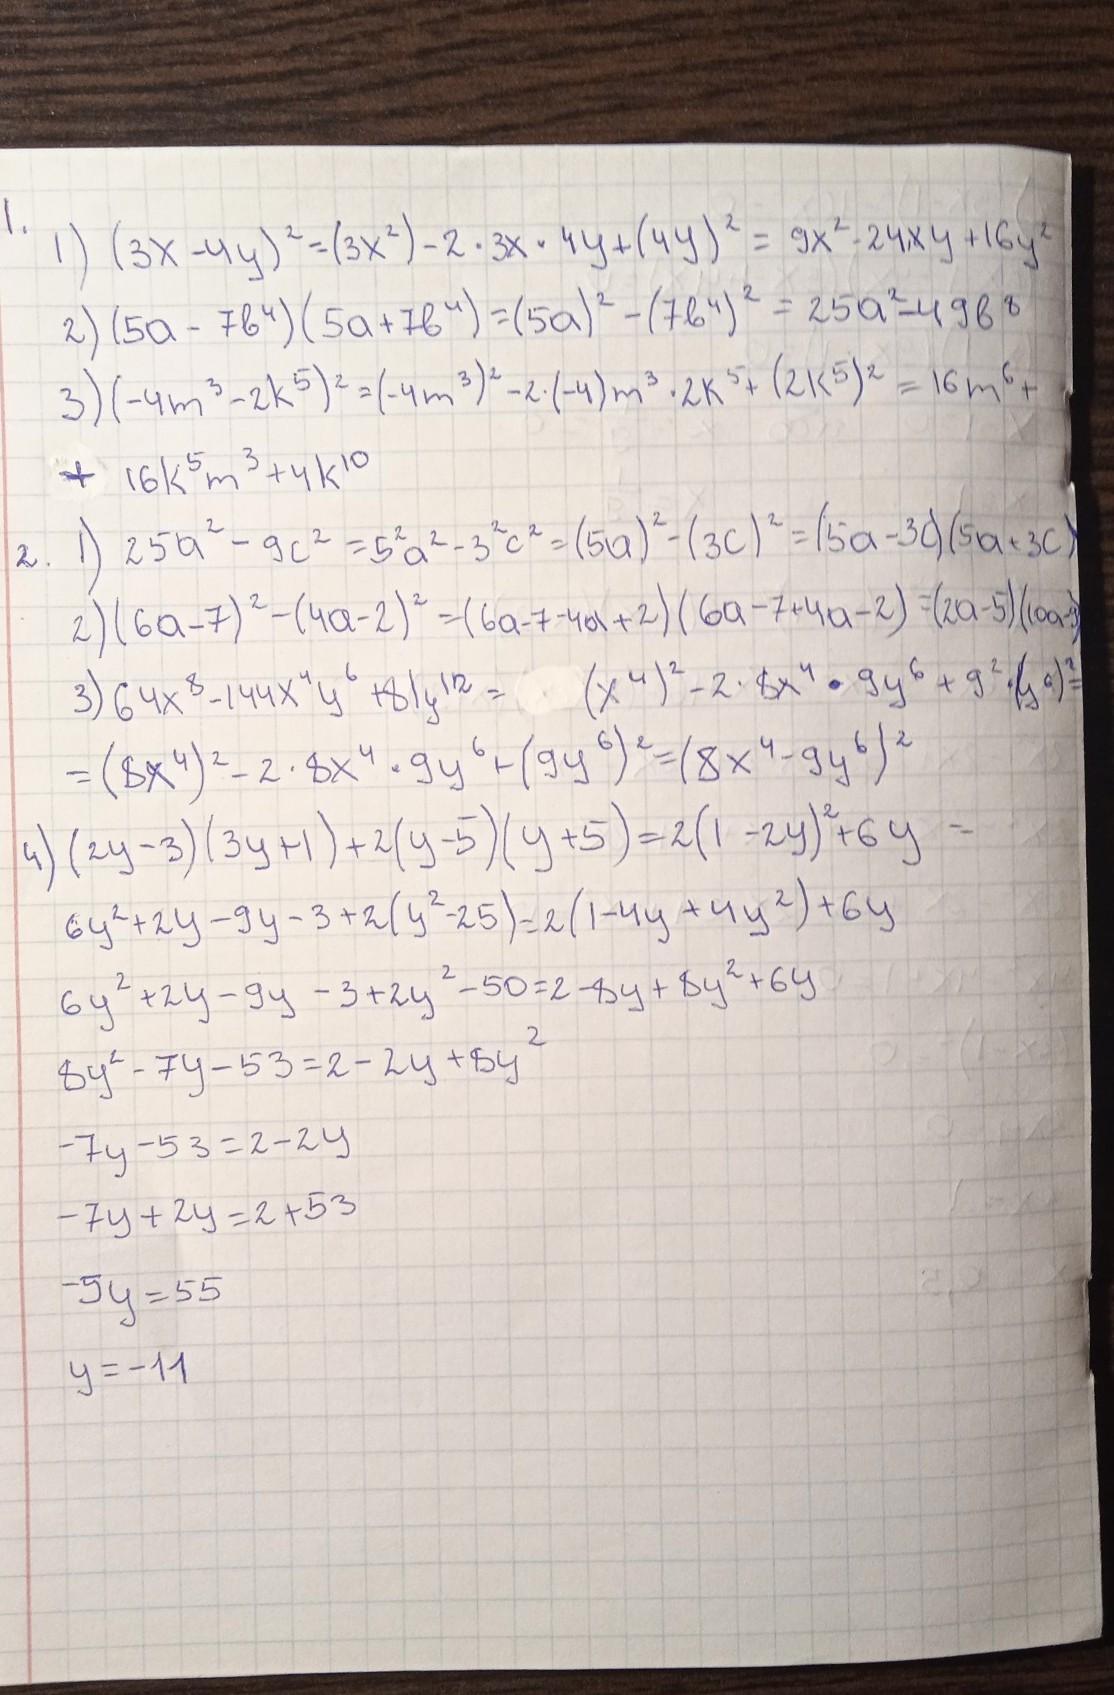 1.
1) (3x - 4y)² = (3x²) - 2 · 3x · 4y + (4y)² = 9x² - 24xy + 16y²
2) (5a - 7b⁴)(5a + 7b⁴) = (5a)² - (7b⁴)² = 25a² - 49b⁸
3) (-4m³ - 2k⁵)² = (-4m³)² - 2·(-4)m³ · 2k⁵ + (2k⁵)² = 16m⁶ +
+ 16k⁵m³ + 4k¹⁰
2. 1) 25a² - 9c² = 5²a² - 3²c² = (5a)² - (3c)² = (5a - 3c)(5a + 3c)
2) (6a - 7)² - (4a - 2)² = (6a - 7 - 4a + 2)(6a - 7 + 4a - 2) = (2a - 5)(10a - 9)
3) 64x⁸ - 144x⁴y⁶ + 81y¹² = (x⁴)² - 2 · 8x⁴ · 9y⁶ + 9² · (y⁶)² =
= (8x⁴)² - 2 · 8x⁴ · 9y⁶ + (9y⁶)² = (8x⁴ - 9y⁶)²
4) (2y - 3)(3y + 1) + 2(y - 5)(y + 5) = 2(1 - 2y)² + 6y =
6y² + 2y - 9y - 3 + 2(y² - 25) = 2(1 - 4y + 4y²) + 6y
6y² + 2y - 9y - 3 + 2y² - 50 = 2 - 8y + 8y² + 6y
8y² - 7y - 53 = 2 - 2y + 8y²
-7y - 53 = 2 - 2y
-7y + 2y = 2 + 53
-5y = 55
y = -11